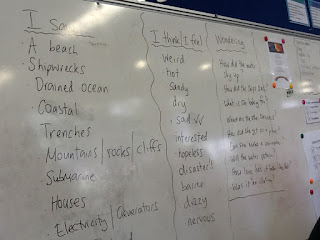 I saw
A beach
Shipwrecks
Drained ocean
Coastal
Trenches
Mountains/rocks/cliffs
Submarine
Houses
Electricity/Generators
I think/I feel
weird
hot
sandy
dry
sad
interested
hopeless
disaster
barrier
dizzy
nervous
Wondering
How did the water
dry up?
How did the ships sink?
What is she looking for?
Where are the
How did she get on a
Will the water
How long has it
Was it